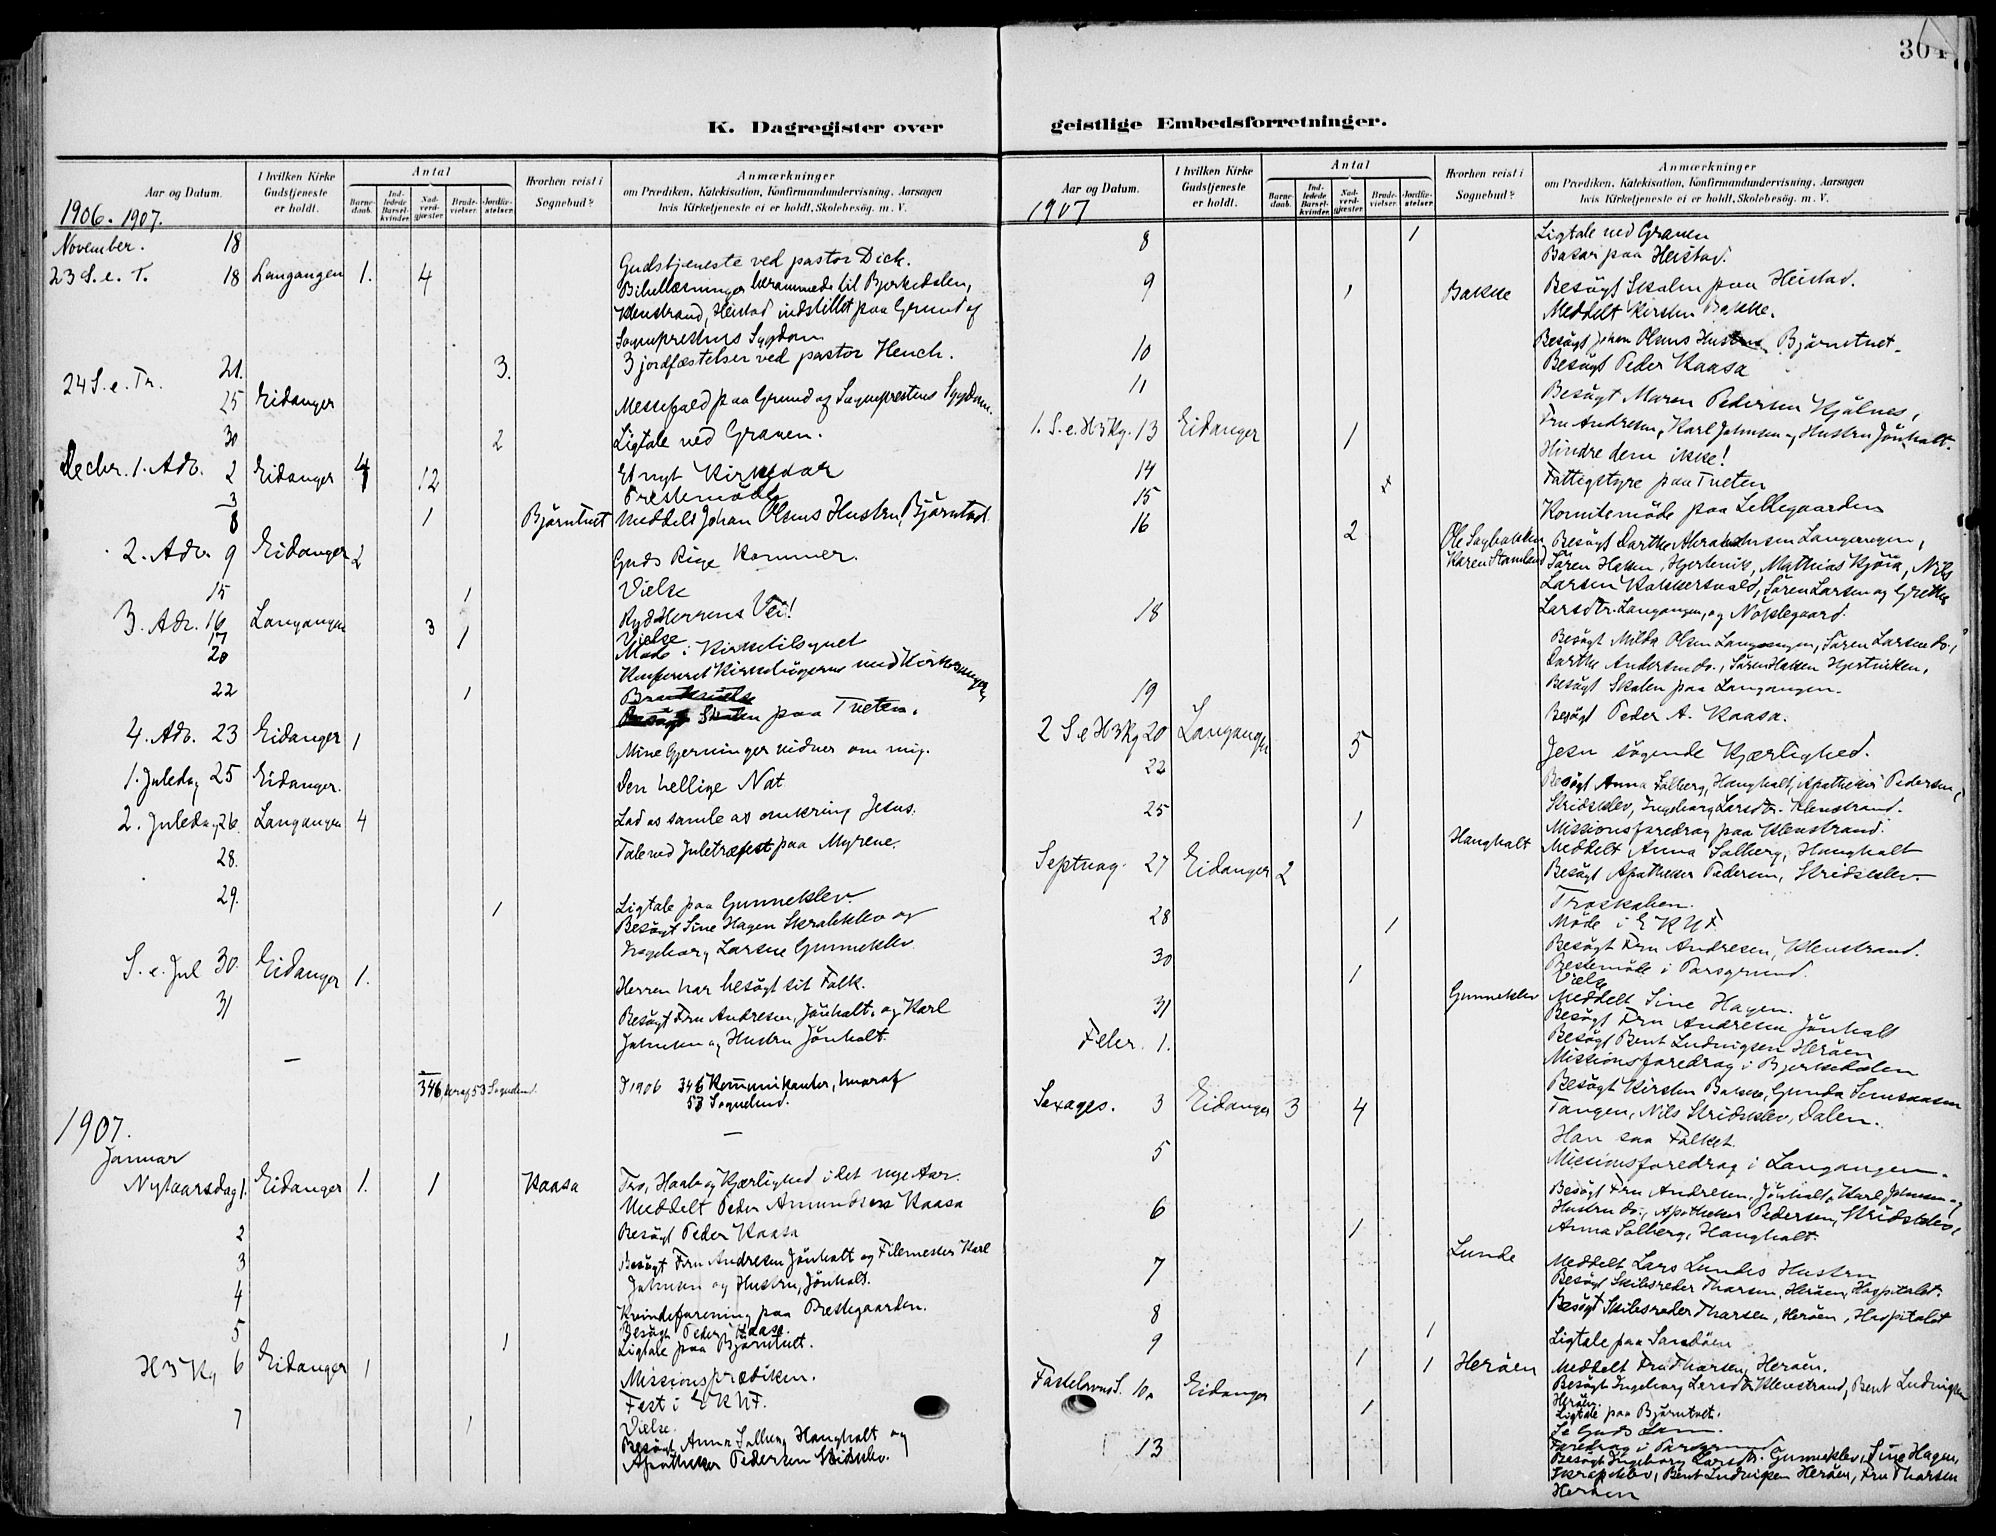 304
K. Dagregister over geistlige Embedsforretninger.
Aar og Datum.
I hvilken Kirke Gudstjeneste er holdt.
Antal
Barne-daab.
Ind-ledede Barsel-kvinder.
Nad-verd-gjæster
Brude-vielser.
Jordfæ-stelser.
Hvorhen reist i Sognebud?
Anmærkninger
om Prædiken, Katekisation, Konfirmandundervisning, Aarsagen
hvis Kirketjeneste ei er holdt, Skolebesøg. m. V.
1906. 1907.
November. 18
23 S. e. T. 18 Langangen 1. 4 Gudstjeneste ved pastor Dick.
Bibellæsninger berammede til Bjerkedalen,
Versstrand, Heistad indstillet paa Grund af
Sogneprestens Sygdom
21. 3. 3 jordfæstelser ved pastor Hench.
24 S. e. Tr. 25 Eidanger Messefald paa Grund af Sogneprestens Sygdom.
30 2 Ligtale ved Graven.
Decbr. 1. Adv. 2 Eidanger 4 12 Et nyt Kirkeaar
3 Prestemöde
8 1 Björntvet Meddelt Johan Olsens Hustru, Björntvet
2. Adv. 9 Eidanger 2 Guds Rige kommer.
15 1 Vielse
3. Adv. 16 Langangen 3 Ryd Herrens Vei!
17 1 Vielse
20 Möde i Kirketilsynet
Konfereret Kirkebøgerne med Kirkesangeren
22 1 Brudevielse
Besøgt Skolen paa Tveten.
4. Adv. 23 Eidanger 1 Mine Gjerninger vidner om mig.
1. Juledag 25 Eidanger. Den hellige Nat
2. Juledag 26. Langangen 4 Lad os samle os omkring Jesus.
28. Tale ved Juletræfest paa Myrene.
29. 1 Ligtale paa Gunneklev.
Besøgt Sine Hagen Skrapeklev og
Ingeborg Larsen Gunneklev
S. e. Jul 30. Eidanger 1. Herren har besøgt sit Folk.
31 Besøgt Fru Andresen, Jönholt, og Karl
Johnsen og Hustru Jönholt.
346, hvoraf 53 Sognebud. I 1906 346 Kommunikanter, hvoraf
53 Sognebud.
1907.
Januar
Nytaarsdag 1. Eidanger 1. 1 Kaasa Tro, Haab og Kjærlighed i det nye Aar.
Meddelt Peder Amundsens Kaasa
2 Besøgt Peder Kaasa
3 Besøgt Fru Andresen Jönholt og Filemester Karl
Johnsen og Hustru, Jönholt.
4 Kvindeforening paa Prestegaarden.
5 Besøgt Peder Kaasa.
1 Ligtale paa Björntvet.
H 3 Kg 6 Eidanger 1 Missionsprædiken.
Fest i E K U F.
7 1 Vielse
Besøgt Anna Solberg Hanghalt og
Apotheker Pedersen Skidseklev.
Aar og Datum.
I hvilken Kirke Gudstjeneste er holdt.
Antal
Barne-daab.
Ind-ledede Barsel-kvinder.
Nad-verd-gjæster
Brude-vielser.
Jordfæ-stelser.
Hvorhen reist i Sognebud?
Anmærkninger
om Prædiken, Katekisation, Konfirmandundervisning, Aarsagen
hvis Kirketjeneste ei er holdt, Skolebesøg. m. V.
1907
8 1 Ligtale ved Graven
Basar paa Heistad.
9 1 Bakke Besøgt Skolen paa Heistad.
Meddelt Kirsten Bakke.
10 Besøgt Johan Olsens Hustru, Björntvet.
Besøgt Peder Kaasa
11 Besøgt Maren Pedersen Kjølnes,
Fru Andresen, Karl Johnsen og Hustru Jönholt.
1. S. e. H 3 Kg. 13 Eidanger 1 Hindre dem ikke!
14 Fattigstyre paa Tveten
15 Komitemöde paa Lillegaarden
16 2 Ole Saghakken Besøgt Dorthe Abrahamsen Langangen,
Karen Stamland Sören Halsen, Hjertevik, Mathias Kjøia, Nils
Larsen Kokkersvold, Sören Larsen og Grethe
Larsdtr. Langangen, og Noklegaard.
18 Besøgt Milda Olsen Langangen, Sören Larsen do.,
Dorthe Andersen do., Sören Halsen Hjertviken,
Besøgt Skolen paa Langangen.
19 Besøgt Peder A. Kaasa.
2 S. e H 3 Kg 20 Langangen 5 Jesu søgende Kjærlighed.
22 Besøgt Anna Solberg, Hanghalt, Apotheker Pedersen,
Skidseklev, Ingeborg Larsdtr. Versstrand.
25 1 Missionsforedrag paa Versstrand.
Hanghalt Meddelt Anna Solberg, Hanghalt
Besøgt Apotheker Pedersen, Skidseklev.
Septuag. 27 Eidanger 2 Troskaben.
Möde i E K U F
28 1 Besøgt Fru Andresen, Versstrand.
30 Prestemöde i Porsgrund.
Vielse
1 Gunneklev Meddelt Sine Hagen.
31 Besøgt Fru Andresen Jönholt
Besøgt Bent Ludvigsen Heröen
Febr. 1. Missionsforedrag i Bjerkedalen
Besøgt Kirsten Bakke, Gunda Simonsen
Tangen, Nils Skidseklev, Dalen.
Sexages. 3 Eidanger 3 4 Han saa Folket.
5 Missionsforedrag i Langangen.
6 Besøgt Fru Andresen, Jönholt, Karl Johnsen og
Hustru do., Apotheker Pedersen, Skidseklev,
Anna Solberg, Hanghalt.
1 Lunde Meddelt Lars Lundes Hustru
7 Besøgt Skibsreder Thorsen, Heröen, Hospitalet.
8 Besøgt Skibsreder Thorsen, Heröen, Hospitalet
9 1 Ligtale paa Sandöen
1 1 Heröen Meddelt Fru Thorsen, Heröen.
Besøgt Ingeborg Larsdtr. Versstrand, Bent Ludvigsen
Heröen.
Ligtale paa Björntvet.
Fastelavns S. 10. Eidanger 1 Se Guds Lam.
Foredrag i Porsgrund
13 Besøgt Ingeborg Larsdtr. Gunneklev, Sine Hagen,
Skrapeklev, Bent Ludvigsen Heröen, Fru Thorsen
Heröen